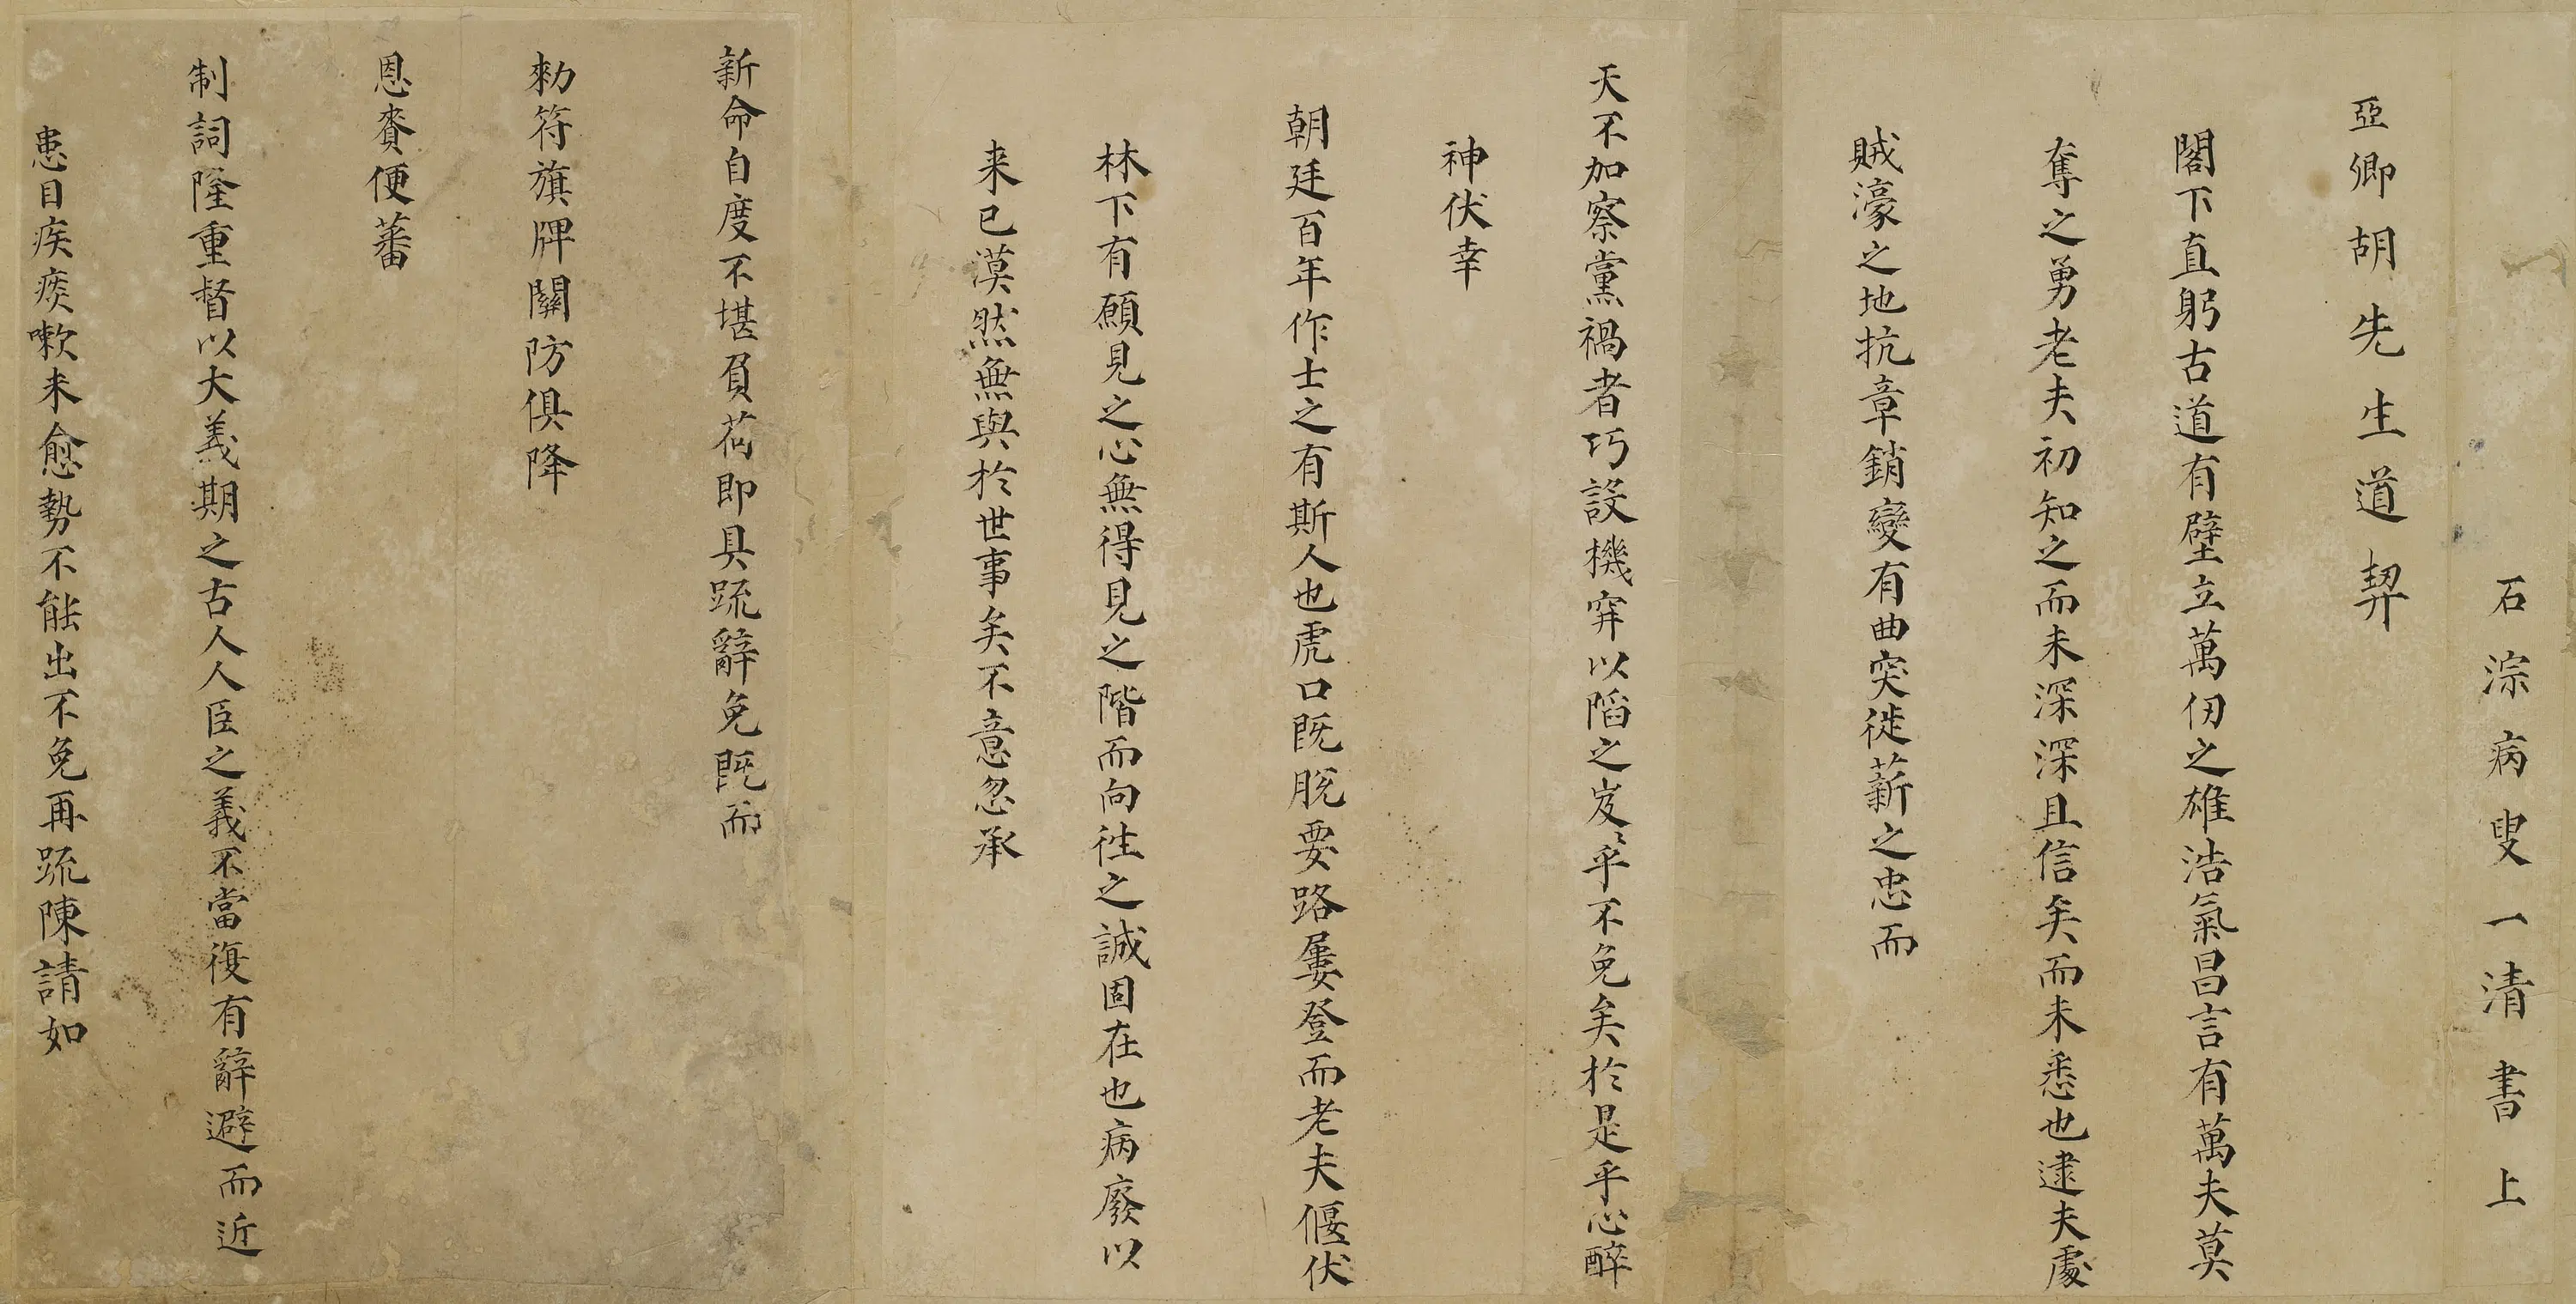 石淙病叟一清書上
亞卿胡先生道契
閣下直躬古道有壁立萬仞之雄浩氣昌言有萬夫莫
奪之勇老夫初知之而未深深且信矣而未悉也逮夫處
賊濠之地抗章銷變有曲突徙薪之忠而
天不加察黨禍者巧設機穽以陷之岌〻乎不免矣於是乎心醉
神伏幸
朝廷百年作士之有斯人也虎口既脫要路屢登而老夫偃伏
林下有願見之心無得見之階而向往之誠固在也病廢以
来已漠然無與於世事矣不意忽承
新命自度不堪負荷即具疏辭免既而
勑符旗牌關防俱降
恩賚便蕃
制詞隆重督以大義期之古人人臣之義不當復有辭避而近
患目疾痰嗽未愈勢不能出不免再疏陳請如